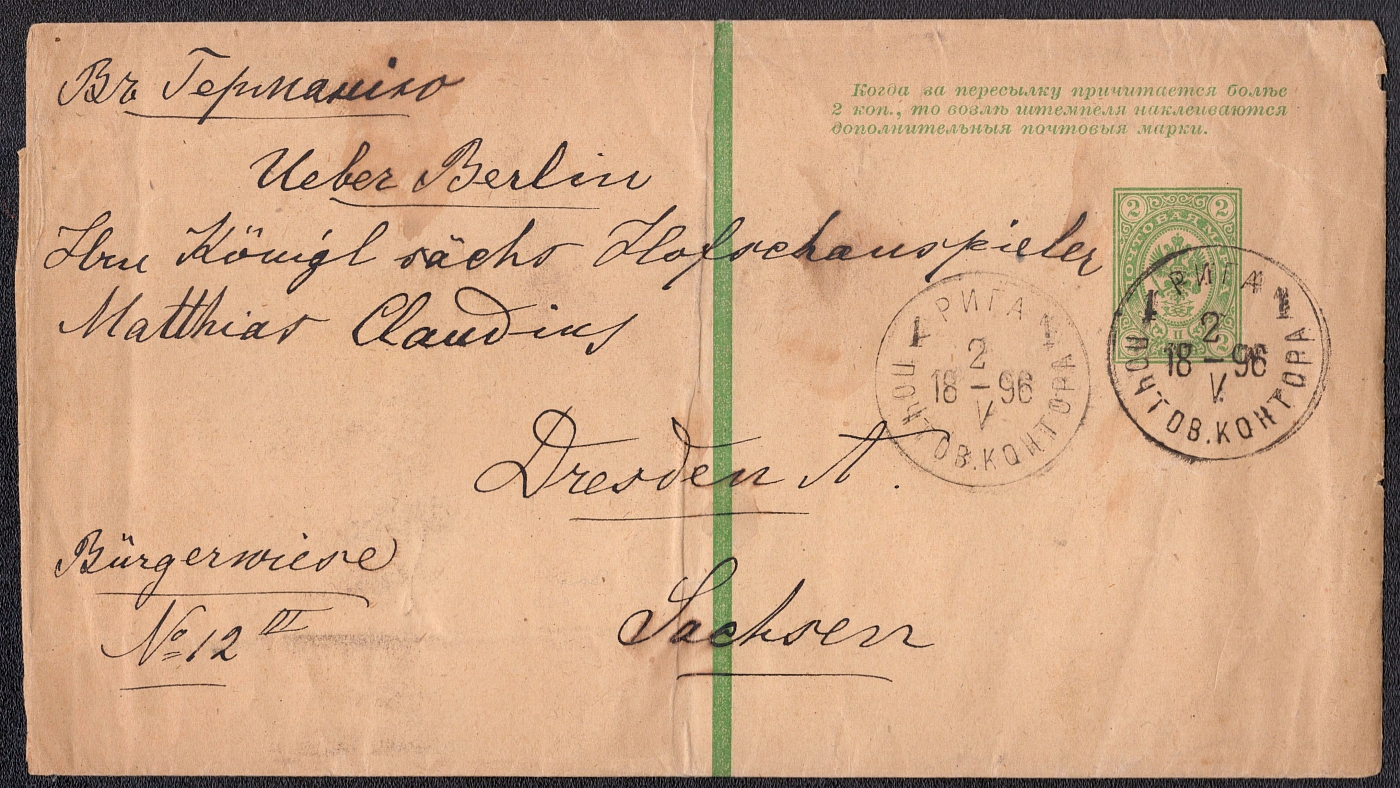 Въ Германію
Ueber Berlin
Hrn Königl sächs Hofschauspieler
Matthias Claudius
Dresden A.
Bürgerwiese
№ 12 III
Sachsen
Когда за пересылку причитается болѣе
2 коп., то возлѣ штемпеля наклеиваются
дополнительныя почтовыя марки.
2 2
ПОЧТОВАЯ МАРКА
2 2
РИГА
1 1
2
18-96
V
ПОЧТОВ. КОНТОРА
РИГА
1 1
2
18-96
V.
ПОЧТОВ. КОНТОРА